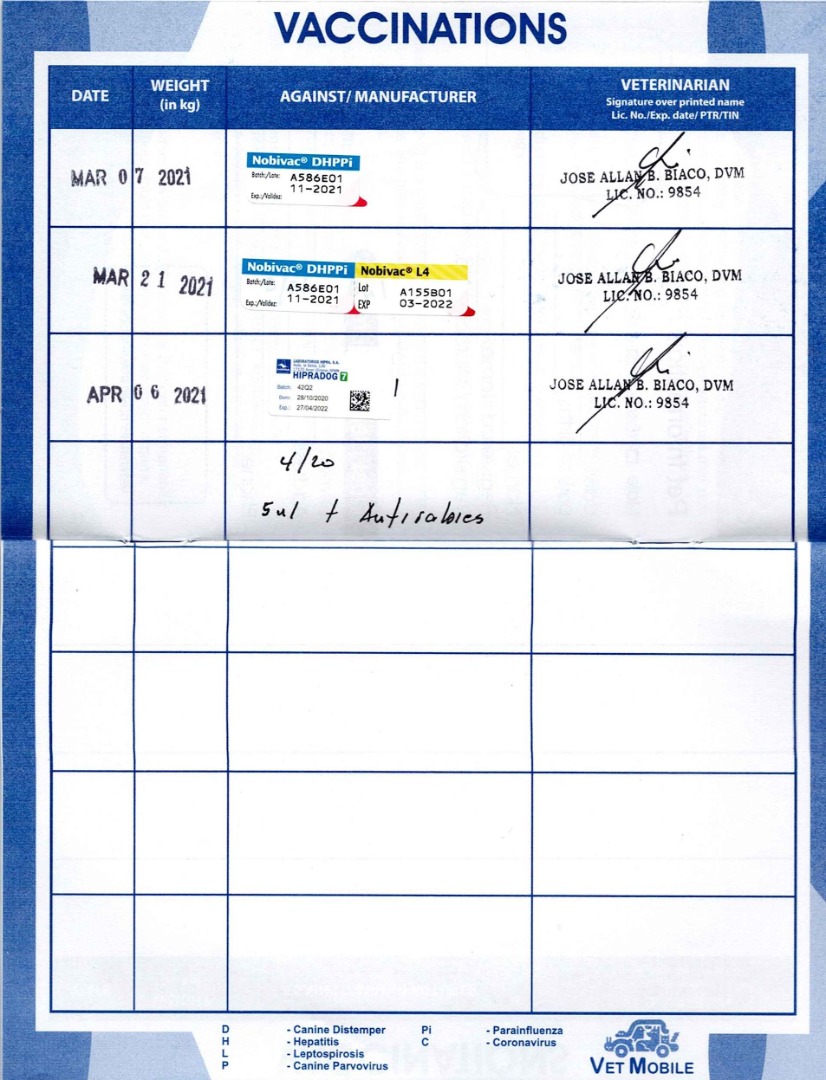 VACCINATIONS
DATE
WEIGHT
(in kg)
AGAINST/ MANUFACTURER
VETERINARIAN
Signature over printed name
Lic. No./Exp. date/ PTR/TIN
MAR 07 2021
Nobivac® DHPPi
Batch/Lote: A586E01
11-2021
Exp.:/Validez:
JOSE ALLAN B. BIACO, DVM
LIC. NO.: 9854
MAR 21 2021
Nobivac® DHPPi
Batch/Lote: A586E01
Exp.:/Validez: 11-2021
Nobivac® L4
Lot A155B01
EXP 03-2022
JOSE ALLAN B. BIACO, DVM
LIC. NO.: 9854
APR 06 2021
LABORATORIOS HIPRA, S.A.
HIPRADOG 7
Batch: 42Q2
Date: 28/10/2020
Exp.: 27/04/2022
JOSE ALLAN B. BIACO, DVM
LIC. NO.: 9854
4/20
5 in 1 + Antirabies
D - Canine Distemper
H - Hepatitis
L - Leptospirosis
P - Canine Parvovirus
Pi - Parainfluenza
C - Coronavirus
VET MOBILE